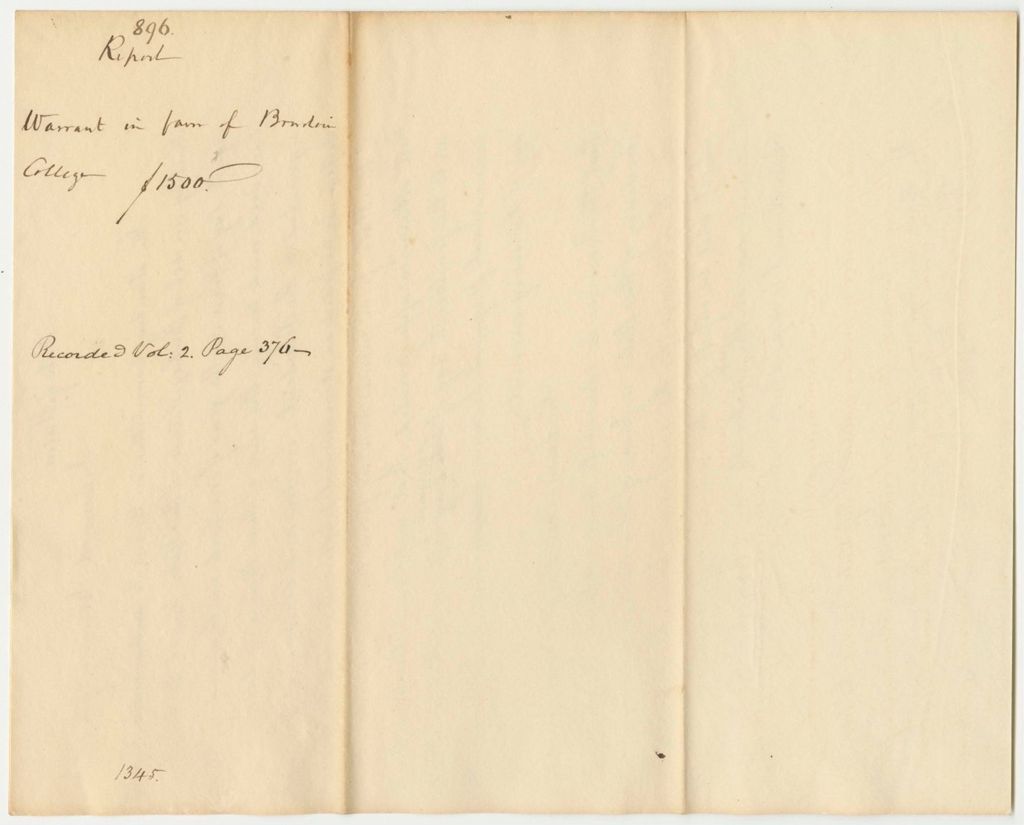 896.
Report
Warrant in favor of Bowdoin
College $1500.
Recorded Vol: 2. Page 376—
1345.